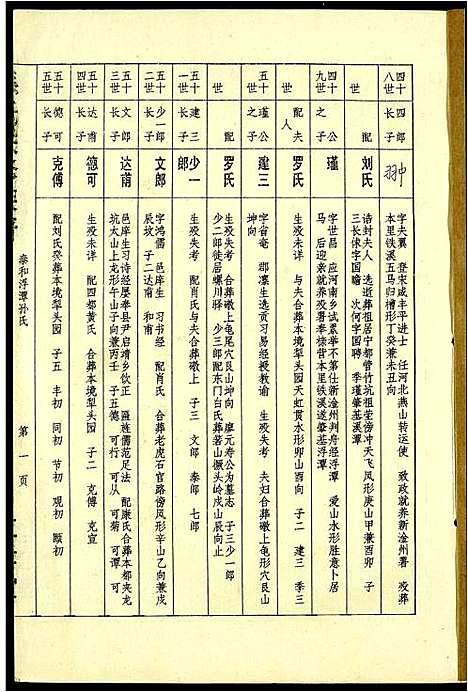 四十八世
四郎长子
翀
字夫翼 登宋咸丰平进士 任河北燕山转运使 致政就养新淦州署 殁葬
本里铁溪五马归槽形丁癸兼未丑向
世
配
刘氏
诰封夫人 选逝葬祖居宁都管竹坑祖茔傍冲天飞凤形庚山甲兼酉卯 子
三长俅字国瞻 次何字国聘 季瑾肇基溪潭
四十九世
公之子
瑾
字世昌 应河南乡试累举不第仕新淦州判舟经浮潭 爱山水形胜意卜居
马 后迎亲就养殁署奉榇营本里铁溪遂肇基浮潭
世
配夫人
罗氏
生殁未详 与夫合葬本境犁头园天虹贯水形卯山酉向 子二 建三 季三
五十世
瑾公之子
建三
字省菴 郡凛生选贡习易经授教谕 生殁失考 夫妇合葬墩上龟形穴艮山
坤向
世
配
罗氏
生殁失考 合葬墩上龟尾穴艮山坤向 廖元寿公为墓志 子三少一郎
少二郎徒居螺川驿 少三郎配东门白氏葬若山撅头岭戌山辰向止
五十一世
建三长子
少一郎
生殁失考 配肖氏与夫合葬墩上 子三 文郎 泰郎 七郎
五十二世
少一郎长子
文郎
字鸿儒 邑庠生 习书经 配肖氏 合葬老虎石官路傍凤形辛山乙向兼戌
辰坟 子二达甫 和甫
五十三世
文郎长子
达甫
邑庠生习诗经屡奉县尹启请乡饮正 蔼族儒范足法 配康氏合葬本都夹龙
坑太山上龙形午山子向兼丙壬 子五德可 可行 可从 可菊 可谭
五十四世
达甫长子
德可
生殁未详 配四都黄氏 合葬本境犁头园 子二 克傅 克宣
五十五世
德可长子
克傅
配刘氏癸葬本境犁头园 子五 丰初 同初 节初 观初 颐初
泰和浮潭孙氏
第一页